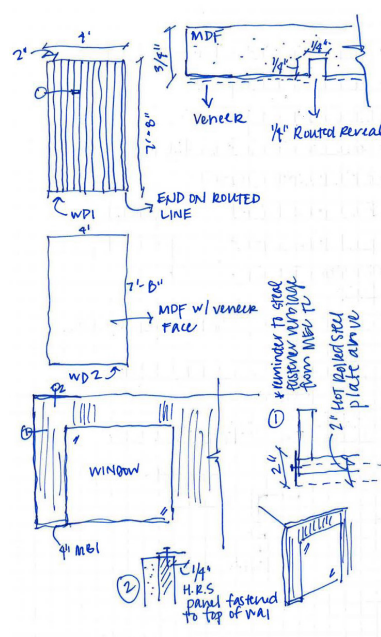 4'
2"
7'-8"
WD1
END ON ROUTED
LINE
MDF
3/4"
1/4"
1/4"
Veneer
1/4" Routed Reveal
4'
7'-8"
MDF w/ veneer
Face
WD2
* reminder to steal
fastener verbiage
from MEC TL
1
2" Hot Rolled Steel
plate above
2"
2
1
WINDOW
4" MB1
2
1/4"
H.R.S
panel fastened
to top of wal